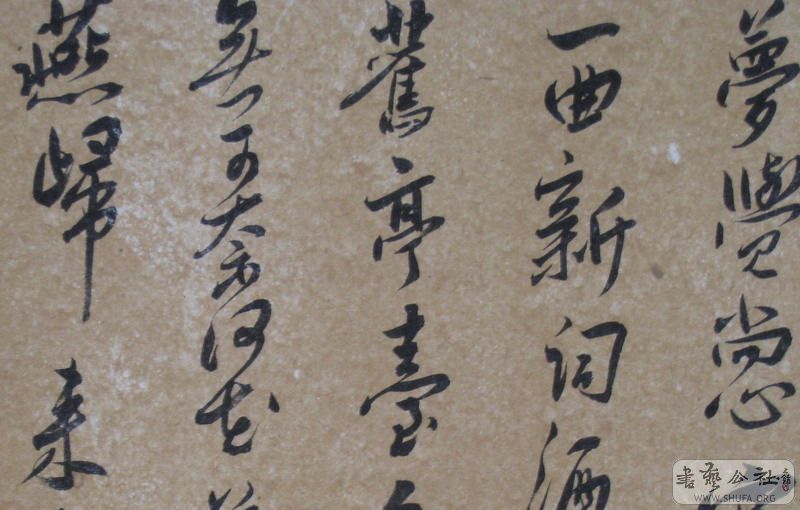 夢覺
一曲新詞酒
舊亭臺
無可奈何花
燕歸來
書藝公社
WWW.SHUFA.ORG